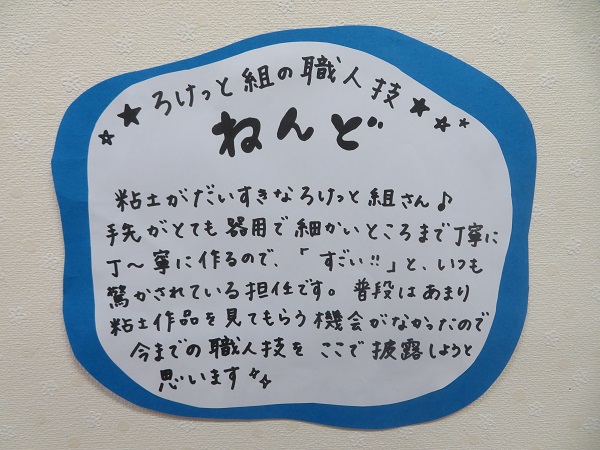 ☆★ろけっと組の職人技★☆★
ねんど
粘土がだいすきなろけっと組さん♪
手先がとても器用で細かいところまで丁寧に
丁〜寧に作るので、「すごい!!」と、いつも
驚かされている担任です。普段はあまり
粘土作品を見てもらう機会がなかったので
今までの職人技をここで披露しようと
思います